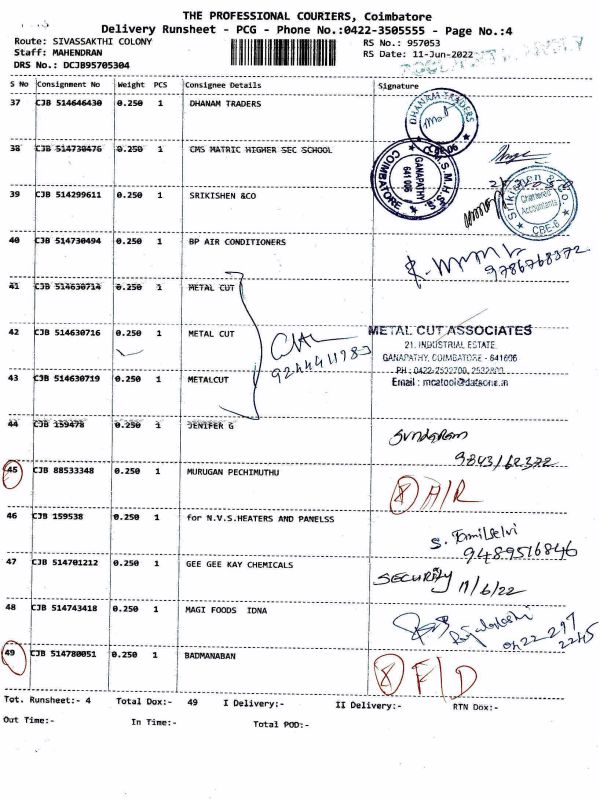 THE PROFESSIONAL COURIERS, Coimbatore
Delivery Runsheet - PCG - Phone No.:0422-3505555 - Page No.:4
Route: SIVASSAKTHI COLONY
RS No.: 957053
Staff: MAHENDRAN
RS Date: 11-Jun-2022
DRS No.: DCJB95705304
S No Consignment No Weight PCS Consignee Details Signature
37 CJB 514646430 0.250 1 DHANAM TRADERS
DHANAM TRADERS
CBE-06
38 CJB 514730476 0.250 1 CMS MATRIC HIGHER SEC SCHOOL
C.M.S.M.H.S.S.
GANAPATHY
641 006
COIMBATORE
39 CJB 514299611 0.250 1 SRIKISHEN &CO
Srikishen & Co.
Chartered
Accountants
CBE-6
40 CJB 514730494 0.250 1 BP AIR CONDITIONERS
9786768372
41 CJB 514630714 0.250 1 METAL CUT
42 CJB 514630716 0.250 1 METAL CUT
9244411783
METAL CUT ASSOCIATES
21, INDUSTRIAL ESTATE,
GANAPATHY, COIMBATORE - 641006
43 CJB 514630719 0.250 1 METALCUT
Email : mcatool@dataone.in
44 CJB 159478 0.250 1 JENIFER G
Sundaram
9843162372
45 CJB 88533348 0.250 1 MURUGAN PECHIMUTHU
A/R
46 CJB 159538 0.250 1 for N.V.S.HEATERS AND PANELSS
S. Tamilselvi
9489516846
47 CJB 514701212 0.250 1 GEE GEE KAY CHEMICALS
SECURITY 11/6/22
48 CJB 514743418 0.250 1 MAGI FOODS IDNA
Rajalakshmi
0422-297
2245
49 CJB 514780051 0.250 1 BADMANABAN
F/D
Tot. Runsheet:- 4 Total Dox:- 49 I Delivery:- II Delivery:- RTN Dox:-
Out Time:- In Time:- Total POD:-